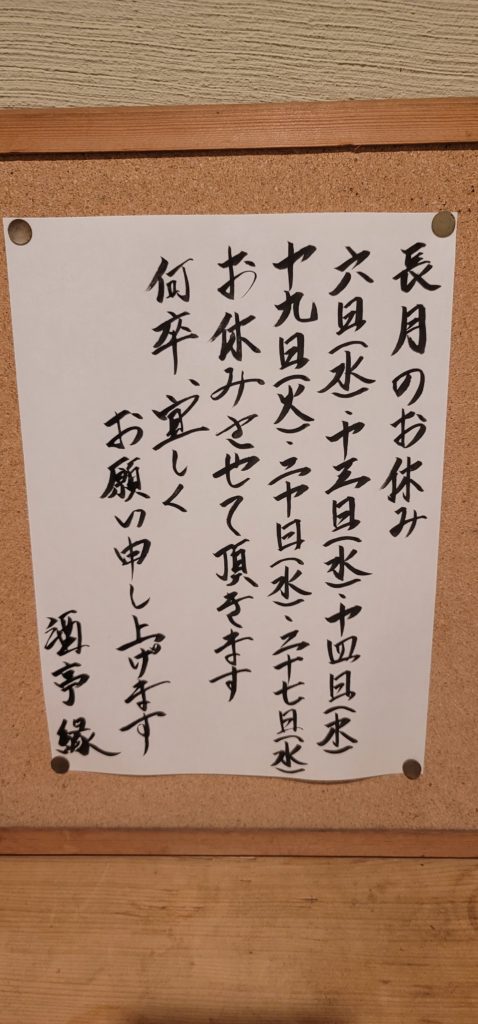 長月のお休み
六日(水)・十三日(水)・十四日(木)
十九日(火)・二十日(水)・二十七日(水)
お休みさせて頂きます
何卒、宜しく
お願い申し上げます
酒亭 縁